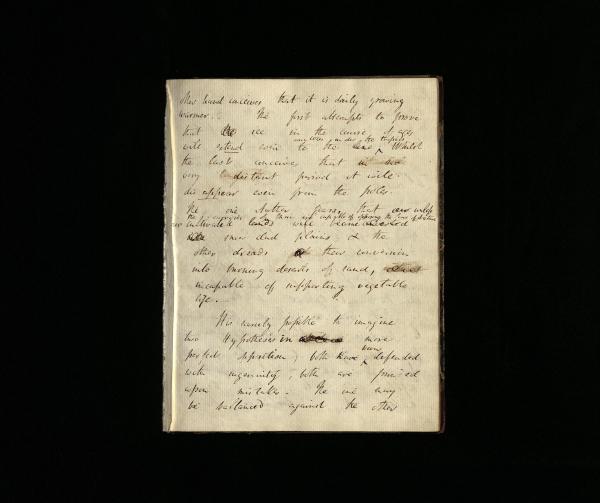 other hand conceives that it is daily growing
warmer. The first attempts to prove
that the ice in the course of ages
under the tropics
will extend even to the line, Whilst
the last conceives that
very distant period it will
disappear even from the poles.
The one Author fears that our
the ingenuity of man incapable of opposing the laws of Nature
cultivated lands will become
snow clad plains & the
other dreads their conversion
into burning deserts of sand,
incapable of supporting vegetable
life.—
It is scarcely possible to imagine
two Hypotheses in more
been
perfect opposition, both have defended
with ingenuity, both are founded
upon mistakes. The one may
be ballanced against the other